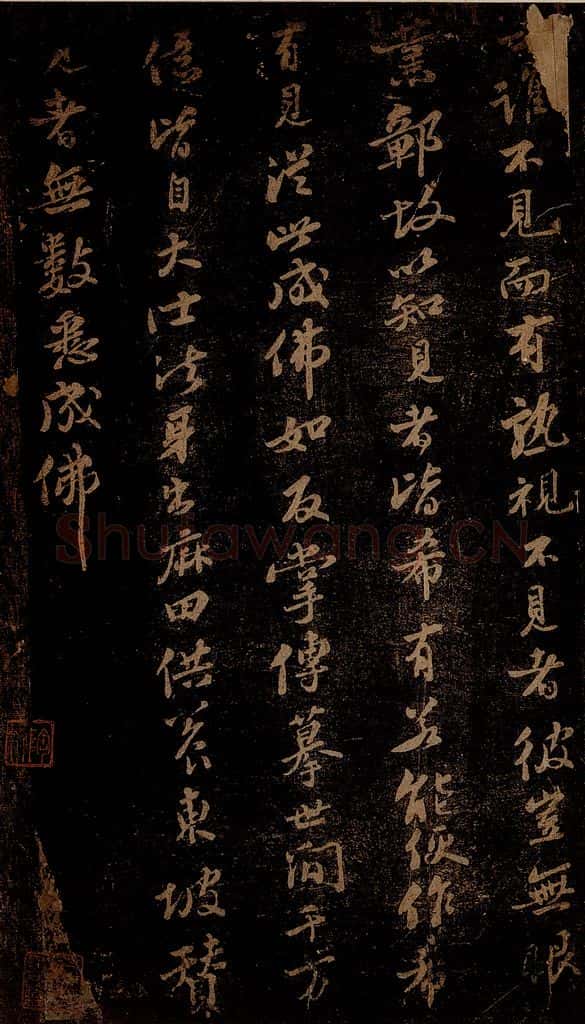 誰不見而有孰視不見者彼豈無眼
業鄣故以知見者皆希有若能便作希
有見從此成佛如反掌傳摹世間千万
億皆自大士法身出麻田供養東坡贊
見者無數悉成佛
Shufawang.CN